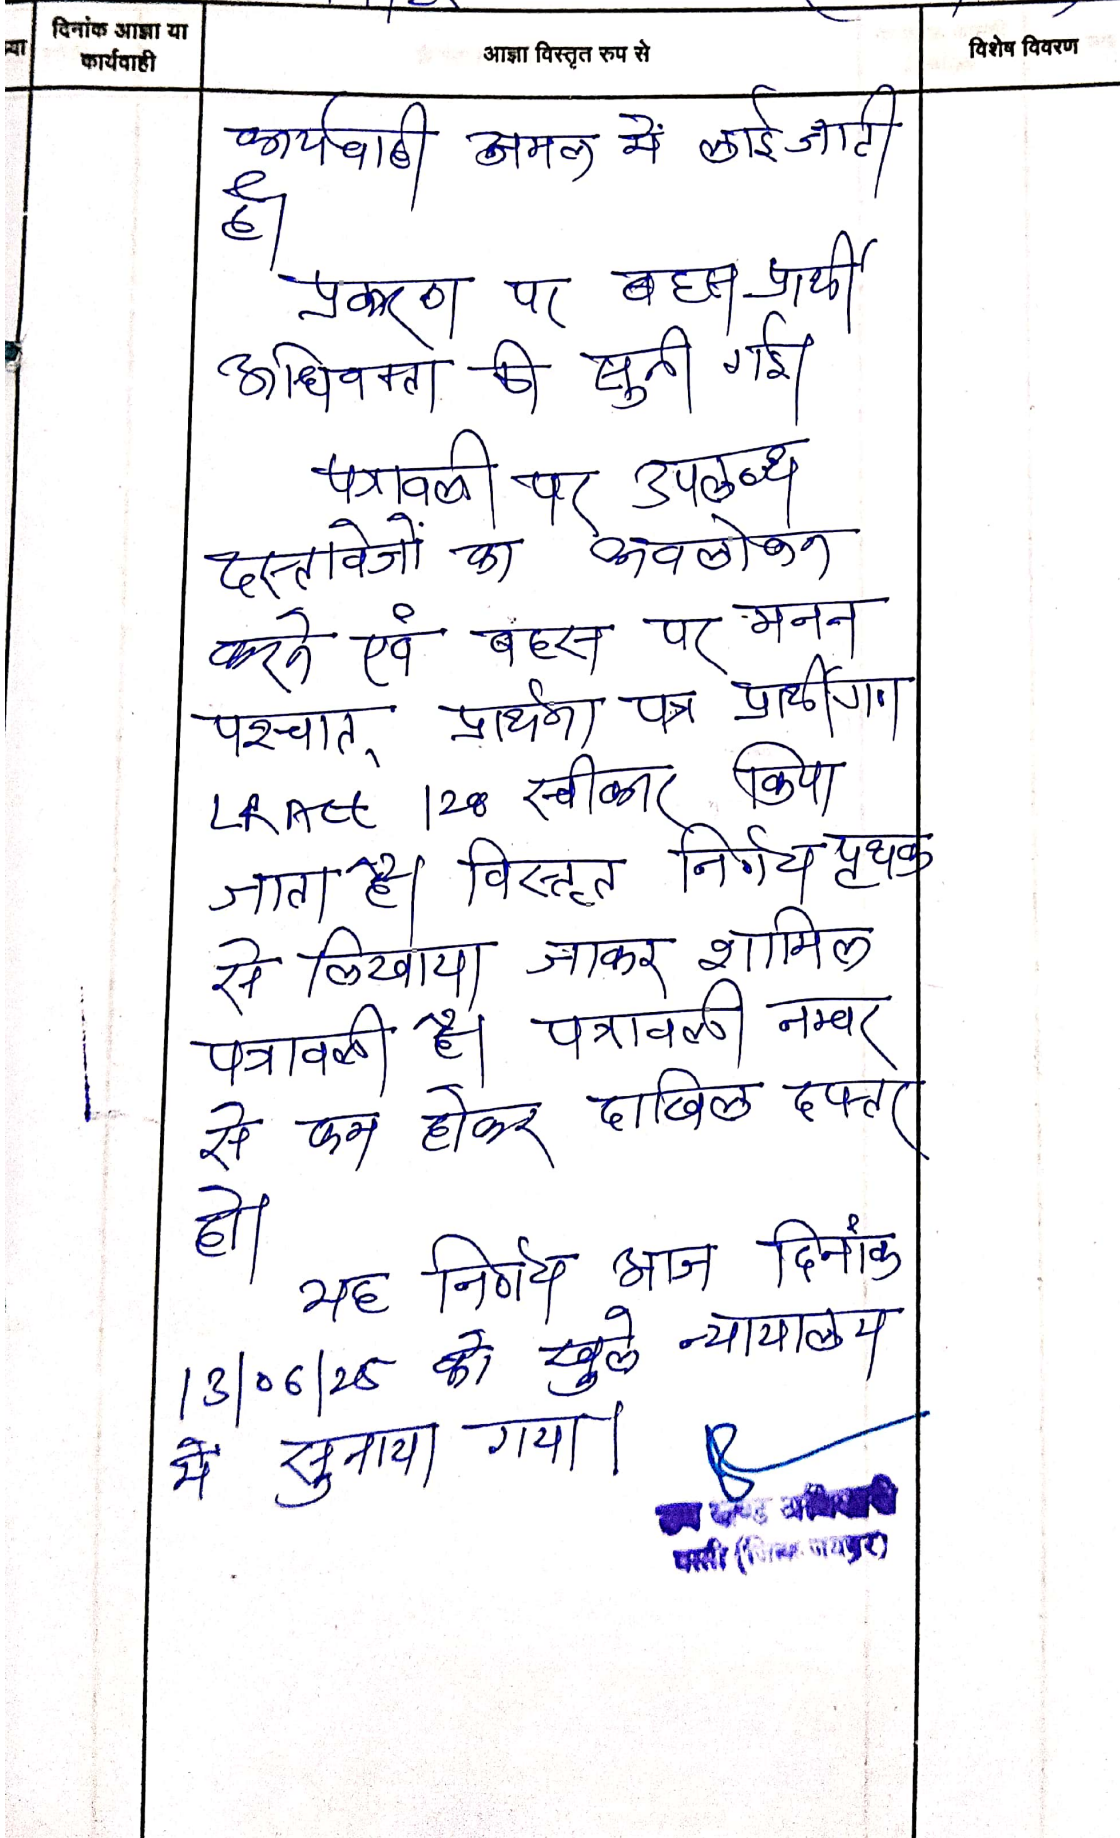 या
दिनांक आज्ञा या
कार्यवाही
आज्ञा विस्तृत रुप से
विशेष विवरण
कार्यवाही अमल में लाई जाती
है।
प्रकरण पर बहस प्रार्थी
अधिवक्ता की सुनी गई।
पत्रावली पर उपलब्ध
दस्तावेजों का अवलोकन
करने एवं बहस पर मनन
पश्चात् प्रार्थना पत्र प्रार्थीगण
LR Act 128 स्वीकार किया
जाता है। विस्तृत निर्णय पृथक
से लिखाया जाकर शामिल
पत्रावली है। पत्रावली नम्बर
से कम होकर दाखिल दफ्तर
हो।
यह निर्णय आज दिनांक
13/06/25 को खुले न्यायालय
में सुनाया गया।
उप खण्ड अधिकारी
बस्सी (जिला-जयपुर)